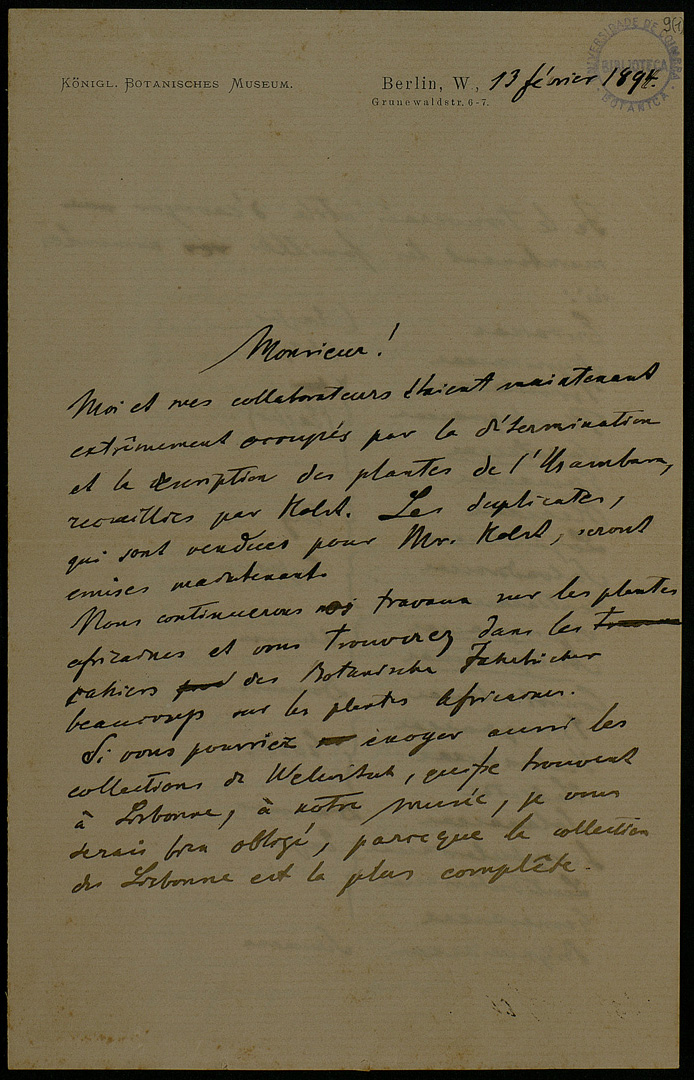 9(1)
UNIVERSIDADE DE COIMBRA
BIBLIOTECA
BOTANICA
KÖNIGL. BOTANISCHES MUSEUM.
Berlin, W., 13 février 1894.
Grunewaldstr. 6-7.
Monsieur!
Moi et mes collaborateurs étaient maintenant
extrêmement occupés par la détermination
et la description des plantes de l'Usambara,
recueillies par Holst. Les duplicates,
qui sont vendues pour Mr. Holst, seront
emises maintenant.
Nous continuerons nos travaux sur les plantes
africaines et vous trouverez dans les
cahiers des Botanische Jahrbücher
beaucoup sur les plantes africaines.
Si vous pourriez envoyer aussi les
collections de Welwitsch, qui se trouvent
à Lisbonne, à notre musée, je vous
serais bien obligé, parceque la collection
de Lisbonne est la plus complête.